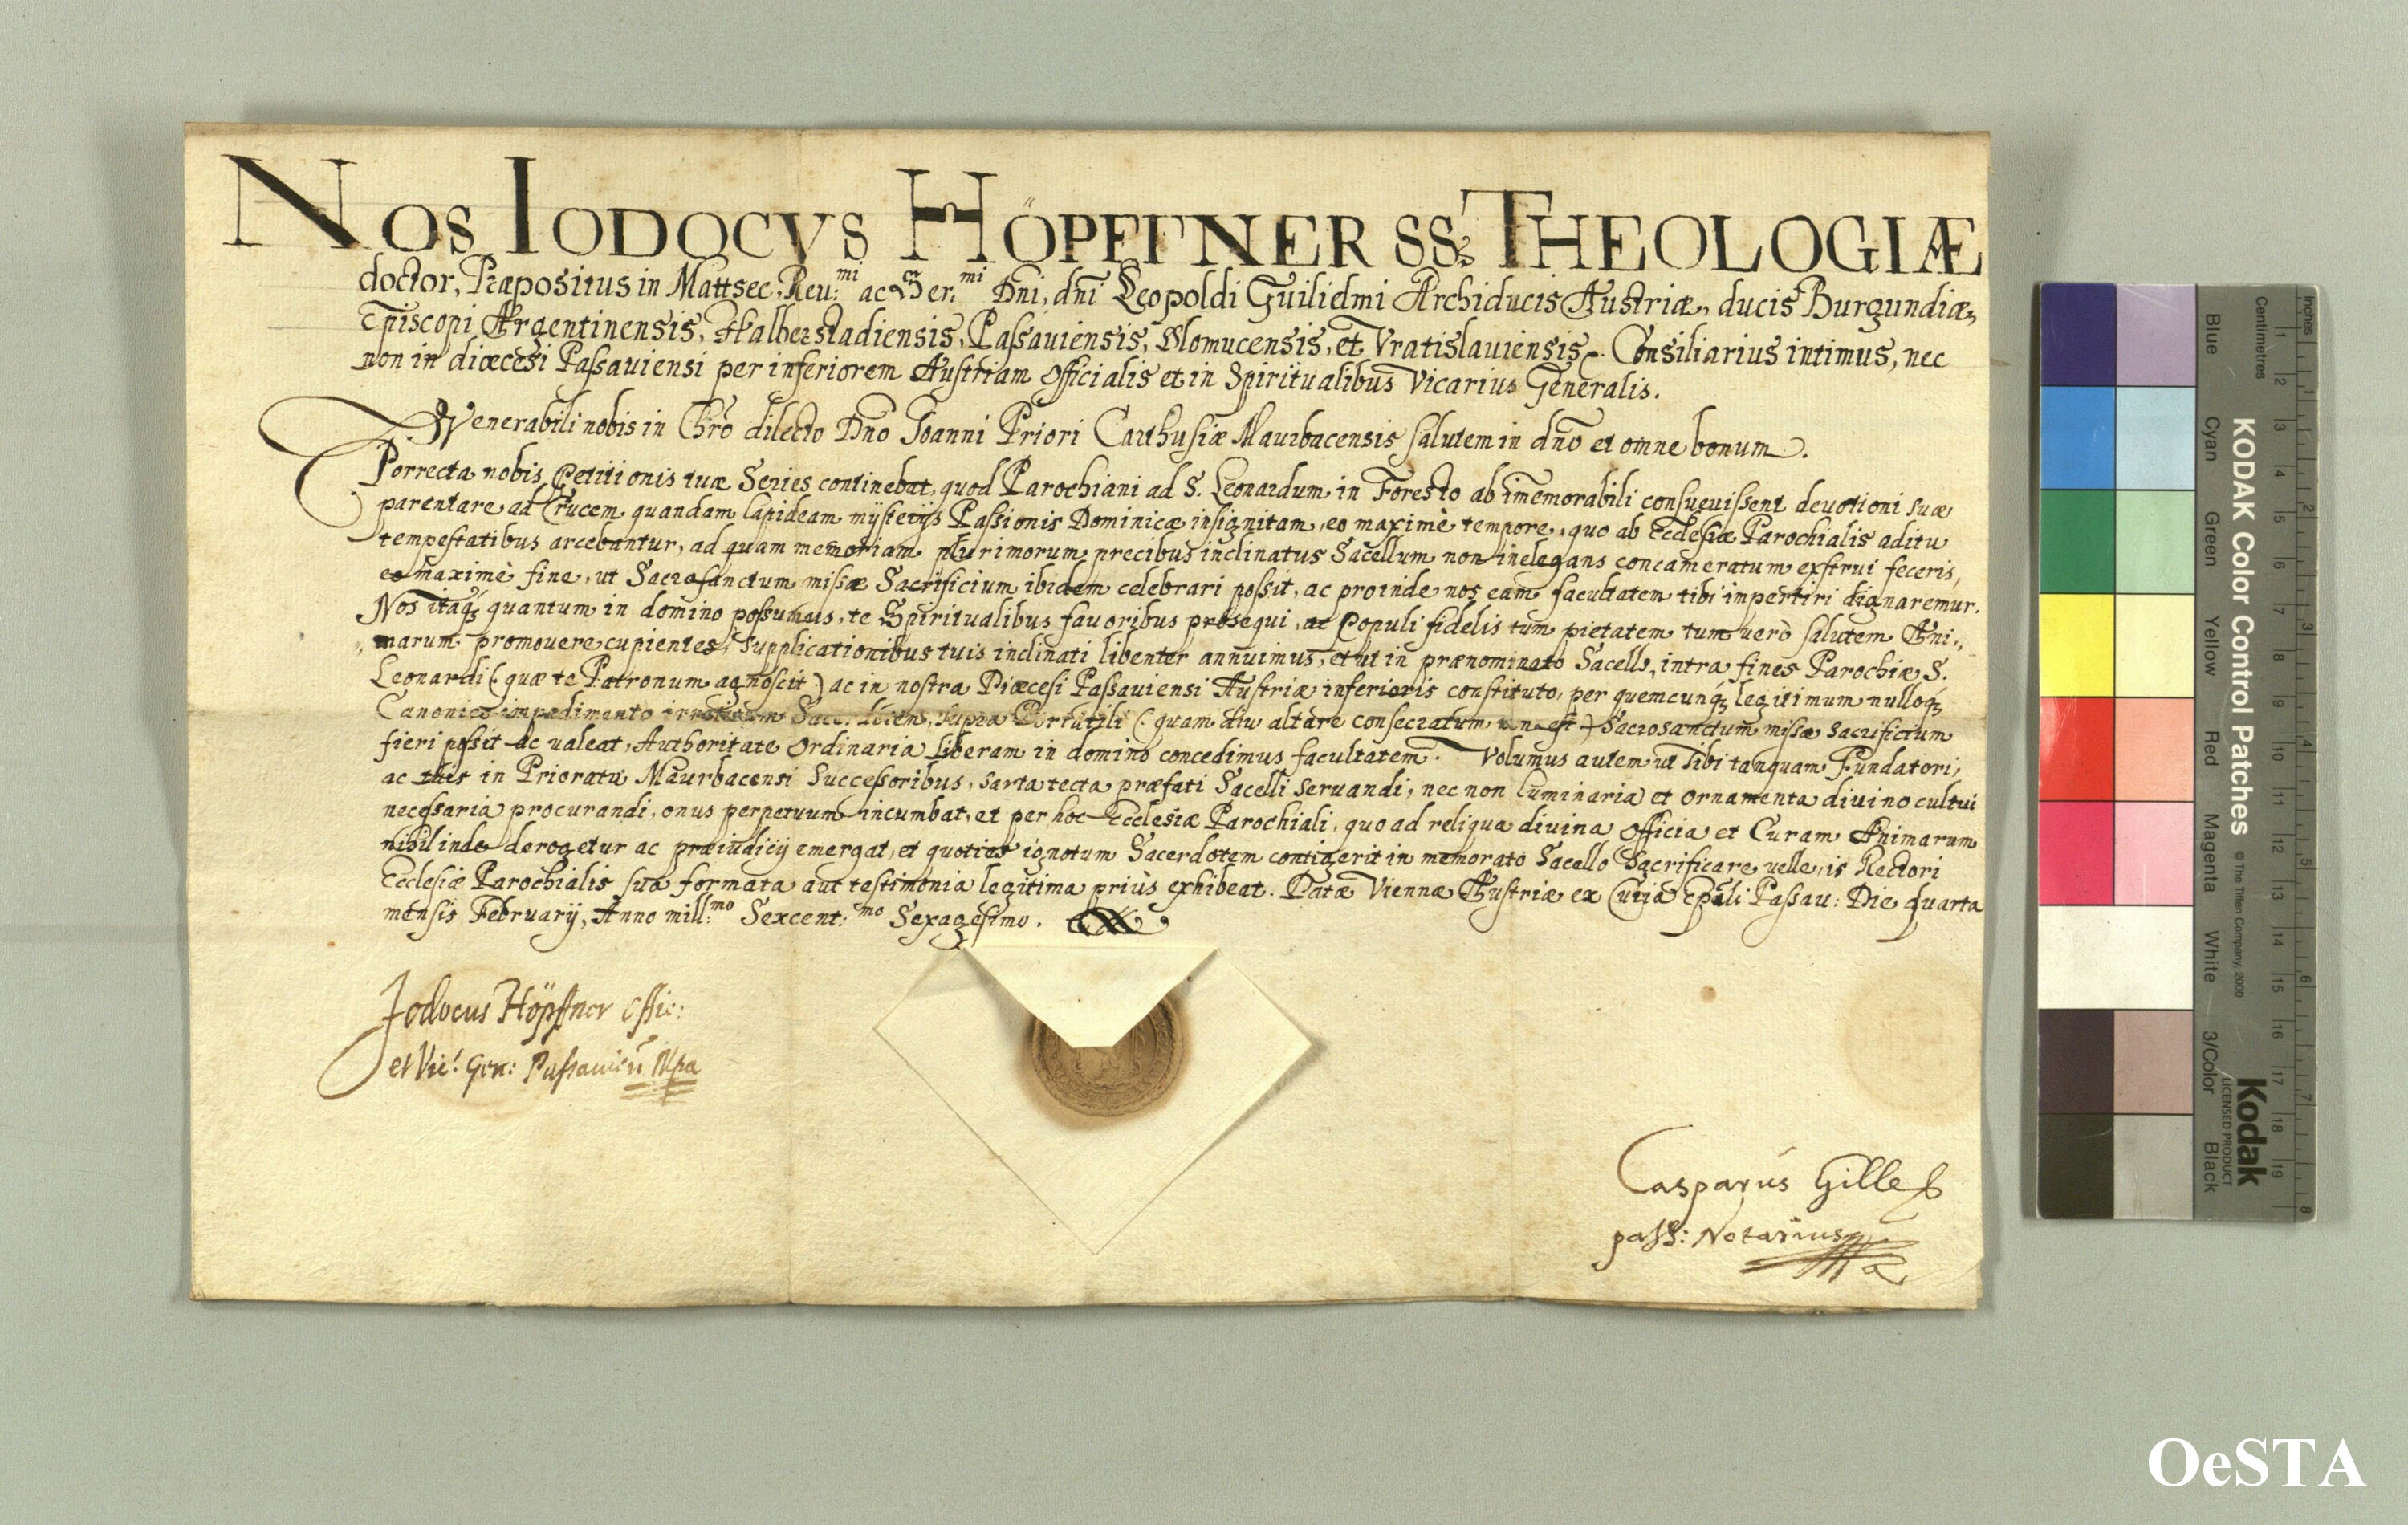 NOS IODOCVS HÖPFFNER SS: THEOLOGIÆ
doctor, Præpositus in Mattsee, Reu:mi ac Ser:mi Dni, dni Leopoldi Guilielmi Archiducis Austriæ, ducis Burgundiæ,
Episcopi Argentinensis, Halberstadiensis, Passauiensis, Olomucensis, et Vratislauiensis. Consiliarius intimus, nec
non in diœcesi Passauiensi per inferiorem Austriam officialis et in Spiritualibus Vicarius Generalis.
Venerabili nobis in Chro dilecto Dno Joanni Priori Carthusiæ Maurbacensis salutem in dno et omne bonum.
Porrecta nobis Petitionis tuæ Series continebat, quod Parochiani ad S. Leonardum in Foresto ab imemorabili consueuissent deuotioni suæ
parentare ad Crucem quandam lapideam mysterijs Passionis Dominicæ insignitam, eo maximè tempore, quo ab Ecclesiæ Parochialis aditu
tempestatibus arcebantur, ad quam memoriam plurimorum precibus inclinatus Sacellum non inelegans concameratum exstrui feceris,
eo maximè fine, ut Sacrosanctum missæ Sacrificium ibidem celebrari possit, ac proinde nos eam facultatem tibi impertiri dignaremur.
Nos itaq; quantum in domino possumus, te Spiritualibus fauoribus prosequi, ac Populi fidelis tum pietatem tum uerò salutem Ani„
„marum promouere cupientes, Supplicationibus tuis inclinati libenter annuimus, et ut in prænominato Sacello, intra fines Parochiæ S.
Leonardi (: quæ te Patronum agnoscit :) ac in nostra Diœcesi Passauiensi Austriæ inferioris constituto, per quemcunq; legitimum nulloq;
Canonico impedimento Sacerdotem, supra Portatili (: quam diu altare consecratum non est :) Sacrosanctum missæ sacrificium
fieri possit ac ualeat, Authoritate Ordinaria liberam in domino concedimus facultatem. Volumus autem ut Tibi tanquam Fundatori,
ac tuis in Prioratu Maurbacensi Successoribus, sarta tecta præfati Sacelli seruandi, nec non luminaria et ornamenta diuino cultui
necessaria procurandi, onus perpetuum incumbat, et per hoc Ecclesiæ Parochiali, quo ad reliqua diuina officia et Curam Animarum
nihil inde derogetur ac præiudicij emergat, et quoties ignotum Sacerdotem contigerit in memorato Sacello Sacrificare uelle, is Rectori
Ecclesiæ Parochialis sua formata aut testimonia legitima priùs exhibeat. Datæ Viennæ Austriæ ex Curia Epali Passau: Die quarta
mensis February, Anno mill:mo Sexcent:mo Sexagesimo.
Jodocus Höpffner Offic:
et Vic: Gen: Passauien Mpa
Casparus Gilles
pass: Notarius
KODAK Color Control Patches
© The Tiffen Company, 2000
Kodak
LICENSED PRODUCT
Inches
Centimetres
Blue Cyan Green Yellow Red Magenta White 3/Color Black
1 2 3 4 5 6 7 8
1 2 3 4 5 6 7 8 9 10 11 12 13 14 15 16 17 18 19
OeSTA